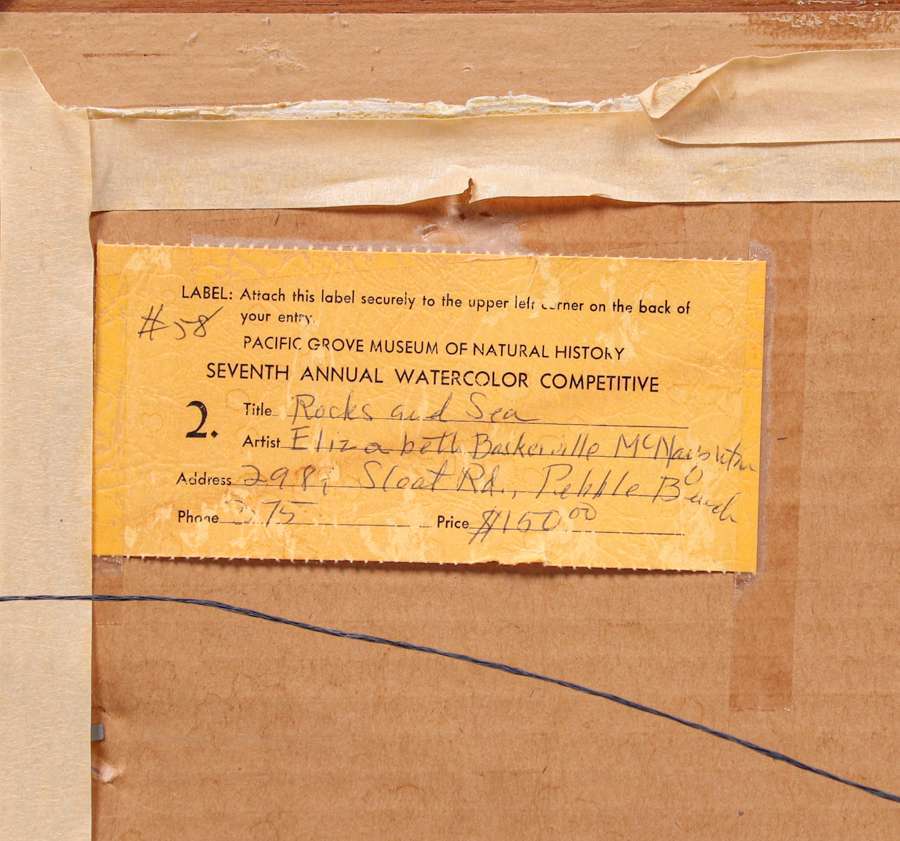 LABEL: Attach this label securely to the upper left corner on the back of
your entry.
#58
PACIFIC GROVE MUSEUM OF NATURAL HISTORY
SEVENTH ANNUAL WATERCOLOR COMPETITIVE
2.
Title Rocks and Sea
Artist Elizabeth Baskerville McNaughton
Address Sloat Rd., Pebble Beach
Phone
Price $150.00